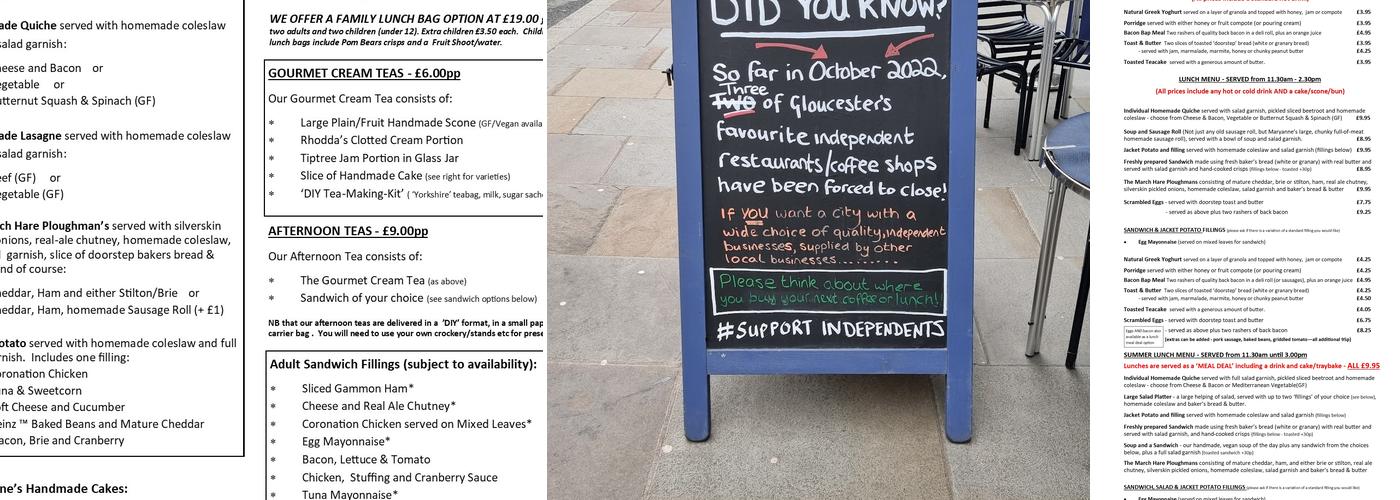 ade Quiche served with homemade coleslaw
salad garnish:
heese and Bacon or
egetable or
utternut Squash & Spinach (GF)
ade Lasagne served with homemade coleslaw
salad garnish:
eef (GF) or
egetable (GF)
rch Hare Ploughman's served with silverskin
onions, real-ale chutney, homemade coleslaw,
garnish, slice of doorstep bakers bread &
nd of course:
heddar, Ham and either Stilton/Brie or
heddar, Ham, homemade Sausage Roll (+ £1)
otato served with homemade coleslaw and full
rnish. Includes one filling:
oronation Chicken
una & Sweetcorn
oft Cheese and Cucumber
einz ™ Baked Beans and Mature Cheddar
acon, Brie and Cranberry
ne's Handmade Cakes:
WE OFFER A FAMILY LUNCH BAG OPTION AT £19.00
two adults and two children (under 12). Extra children £3.50 each. Child
lunch bags include Pom Bears crisps and a Fruit Shoot/water.
GOURMET CREAM TEAS - £6.00pp
Our Gourmet Cream Tea consists of:
* Large Plain/Fruit Handmade Scone (GF/Vegan availa
* Rhodda's Clotted Cream Portion
* Tiptree Jam Portion in Glass Jar
* Slice of Handmade Cake (see right for varieties)
* 'DIY Tea-Making-Kit' ( 'Yorkshire' teabag, milk, sugar sach
AFTERNOON TEAS - £9.00pp
Our Afternoon Tea consists of:
* The Gourmet Cream Tea (as above)
* Sandwich of your choice (see sandwich options below)
NB that our afternoon teas are delivered in a 'DIY' format, in a small pap
carrier bag . You will need to use your own crockery/stands etc for prese
Adult Sandwich Fillings (subject to availability):
* Sliced Gammon Ham*
* Cheese and Real Ale Chutney*
* Coronation Chicken served on Mixed Leaves*
* Egg Mayonnaise*
* Bacon, Lettuce & Tomato
* Chicken, Stuffing and Cranberry Sauce
* Tuna Mayonnaise*
DID YOU KNOW?
So far in October 2022,
Three
Two of Gloucester's
favourite independent
restaurants/coffee shops
have been forced to close!
If you want a city with a
wide choice of quality, independent
businesses, supplied by other
local businesses.........
Please think about where
you buy your next coffee or lunch!
#SUPPORT INDEPENDENTS
Natural Greek Yoghurt served on a layer of granola and topped with honey, jam or compote £3.95
Porridge served with either honey or fruit compote (or pouring cream) £3.95
Bacon Bap Meal Two rashers of quality back bacon in a deli roll, plus an orange juice £4.95
Toast & Butter Two slices of toasted 'doorstep' bread (white or granary) £3.95
- served with jam, marmalade, marmite, honey or chunky peanut butter £4.25
Toasted Teacake served with a generous amount of butter. £3.95
LUNCH MENU - SERVED from 11.30am - 2.30pm
(All prices include any hot or cold drink AND a cake/scone/bun)
Individual Homemade Quiche served with salad garnish, pickled sliced beetroot and homemade
coleslaw - choose from Cheese & Bacon, Vegetable or Butternut Squash & Spinach (GF) £9.95
Soup and Sausage Roll (Not just any old sausage roll, but Maryanne's large, chunky full-of-meat
homemade sausage roll), served with a bowl of soup and salad garnish. £8.95
Jacket Potato and filling served with homemade coleslaw and salad garnish (fillings below) £9.95
Freshly prepared Sandwich made using fresh baker's bread (white or granary) with real butter and
served with salad garnish and hand-cooked crisps (fillings below - toasted +30p) £8.95
The March Hare Ploughmans consisting of mature cheddar, brie or stilton, ham, real ale chutney,
silverskin pickled onions, homemade coleslaw, salad garnish and baker's bread & butter £9.95
Scrambled Eggs - served with doorstep toast and butter £7.75
- served as above plus two rashers of back bacon £9.25
SANDWICH & JACKET POTATO FILLINGS (please ask if there is a variation of a standard filling you would like)
• Egg Mayonnaise (served on mixed leaves for sandwich)
Natural Greek Yoghurt served on a layer of granola and topped with honey, jam or compote £4.25
Porridge served with either honey or fruit compote (or pouring cream) £4.25
Bacon Bap Meal Two rashers of quality back bacon in a deli roll (or sausages), plus an orange juice £4.95
Toast & Butter Two slices of toasted 'doorstep' bread (white or granary) £4.25
- served with jam, marmalade, marmite, honey or chunky peanut butter £4.50
Toasted Teacake served with a generous amount of butter. £4.05
Scrambled Eggs - served with doorstep toast and butter £6.75
- served as above plus two rashers of back bacon £8.25
Eggs AND bacon also
available as a lunch
meal deal option
(extras can be added - pork sausage, baked beans, griddled tomato—all additional 95p)
SUMMER LUNCH MENU - SERVED from 11.30am until 3.00pm
Lunches are served as a 'MEAL DEAL' including a drink and cake/traybake - ALL £9.95
Individual Homemade Quiche served with full salad garnish, pickled sliced beetroot and homemade
coleslaw - choose from Cheese & Bacon or Mediterranean Vegetable(GF)
Large Salad Platter - a large helping of salad, served with up to two 'fillings' of your choice (see below),
homemade coleslaw and baker's bread & butter.
Jacket Potato and filling served with homemade coleslaw and salad garnish (fillings below)
Freshly prepared Sandwich made using fresh baker's bread (white or granary) with real butter and
served with salad garnish, and hand-cooked crisps (fillings below - toasted +30p)
Soup and a Sandwich - our handmade, vegan soup of the day plus any sandwich from the choices
below, plus a full salad garnish (toasted sandwich +30p)
The March Hare Ploughmans consisting of mature cheddar, ham, and either brie or stilton, real ale
chutney, silverskin pickled onions, homemade coleslaw, salad garnish and baker's bread & butter
SANDWICH, SALAD & JACKET POTATO FILLINGS (please ask if there is a variation of a standard filling you would like)